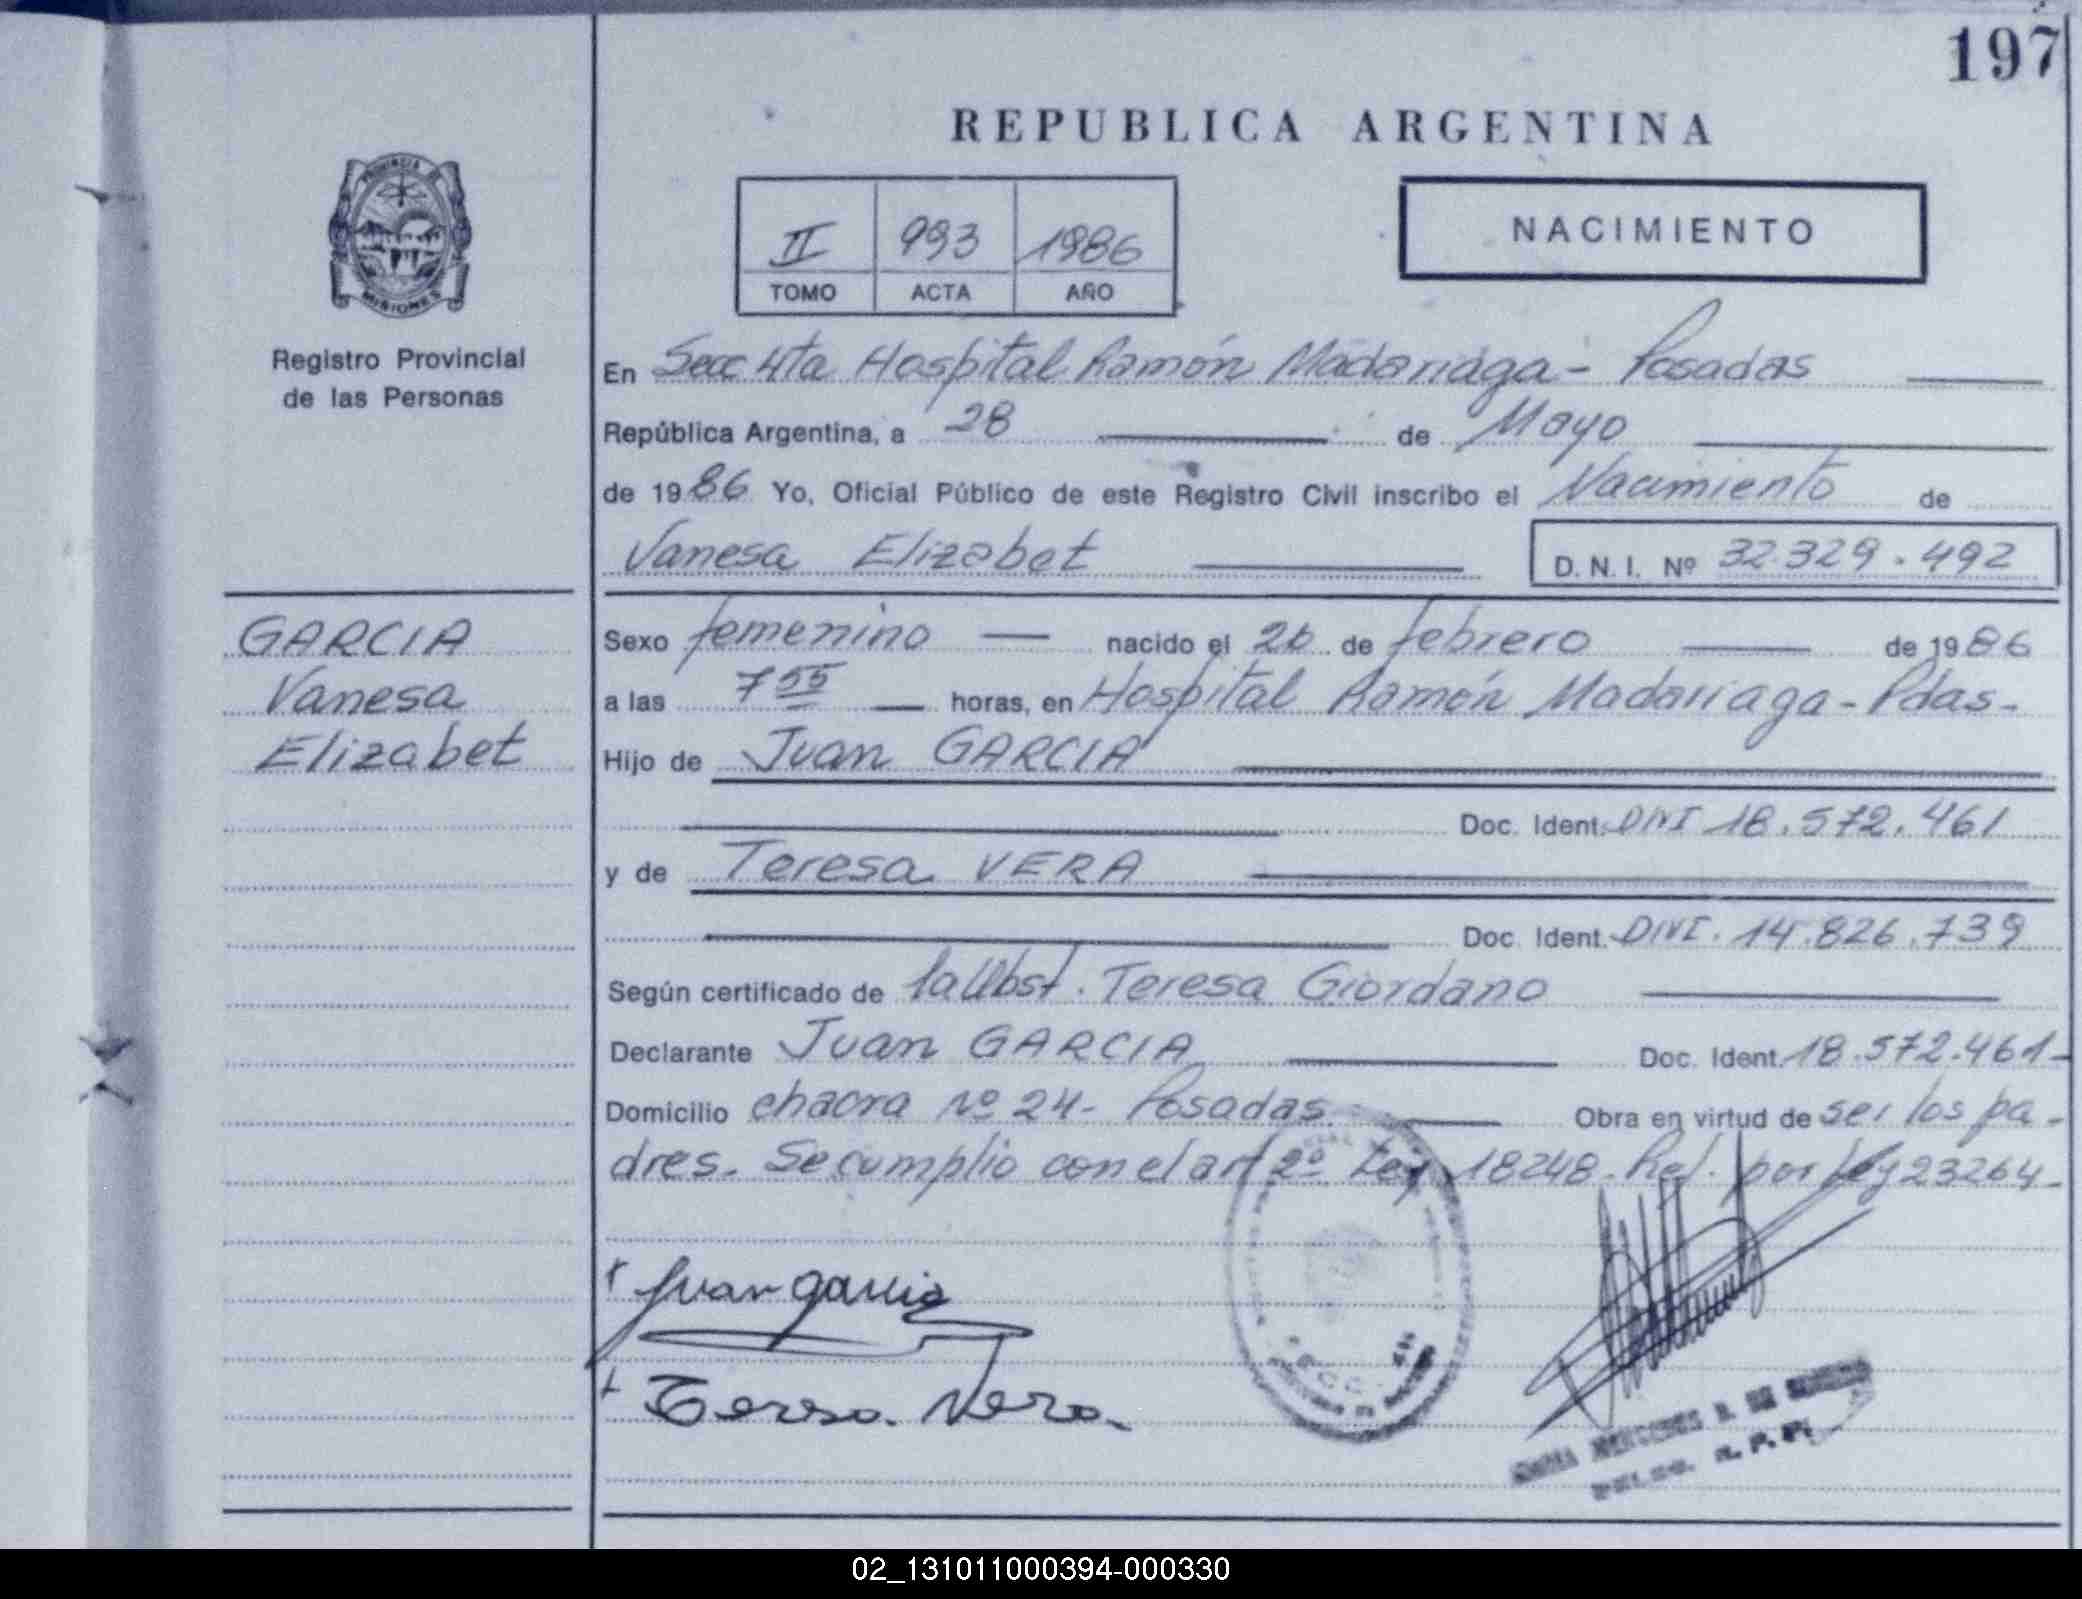 197
REPUBLICA ARGENTINA
PROVINCIA DE
MISIONES
Registro Provincial
de las Personas
II 993 1986
TOMO ACTA AÑO
NACIMIENTO
En Secc 4ta Hospital Ramón Madariaga - Posadas
República Argentina, a 28 de Mayo
de 1986 Yo, Oficial Público de este Registro Civil inscribo el Nacimiento de
Vanesa Elizabet D. N. I. Nº 32.329.492
GARCIA
Vanesa
Elizabet
Sexo femenino nacido el 26 de febrero de 1986
a las 7 55 horas, en Hospital Ramón Madariaga - Pdas-
Hijo de Juan GARCIA
Doc. Ident. DNI 18.572.461
y de Teresa VERA
Doc. Ident. DNI. 14.826.739
Según certificado de la Obst. Teresa Giordano
Declarante Juan GARCIA Doc. Ident. 18.572.461-
Domicilio chacra Nº 24- Posadas. Obra en virtud de ser los pa-
dres. Se cumplio con el art 2º Ley 18248. Ref. por Ley 23264-
Juan garcia
Teresa. Vera.
R. P. P.
02_131011000394-000330